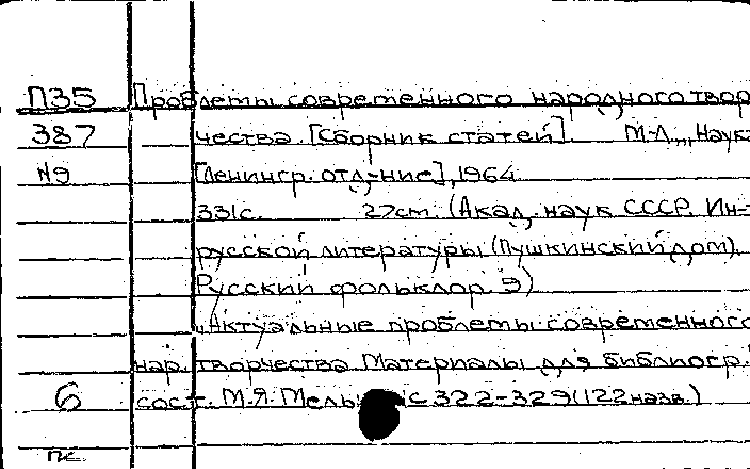 П35 Проблемы современного народного твор
387 чества. [Сборник статей]. М-Л., „Наука
№9 [Ленингр. отд-ние], 1964
331с. 27см. (Акад. наук СССР. Ин-
русской литературы (Пушкинский дом).
Русский фольклор. 9)
„Актуальные проблемы современного
нар. творчества. Материалы для библиогр."
6 сост. М.Я. Мель с 322-329 (122 назв.)